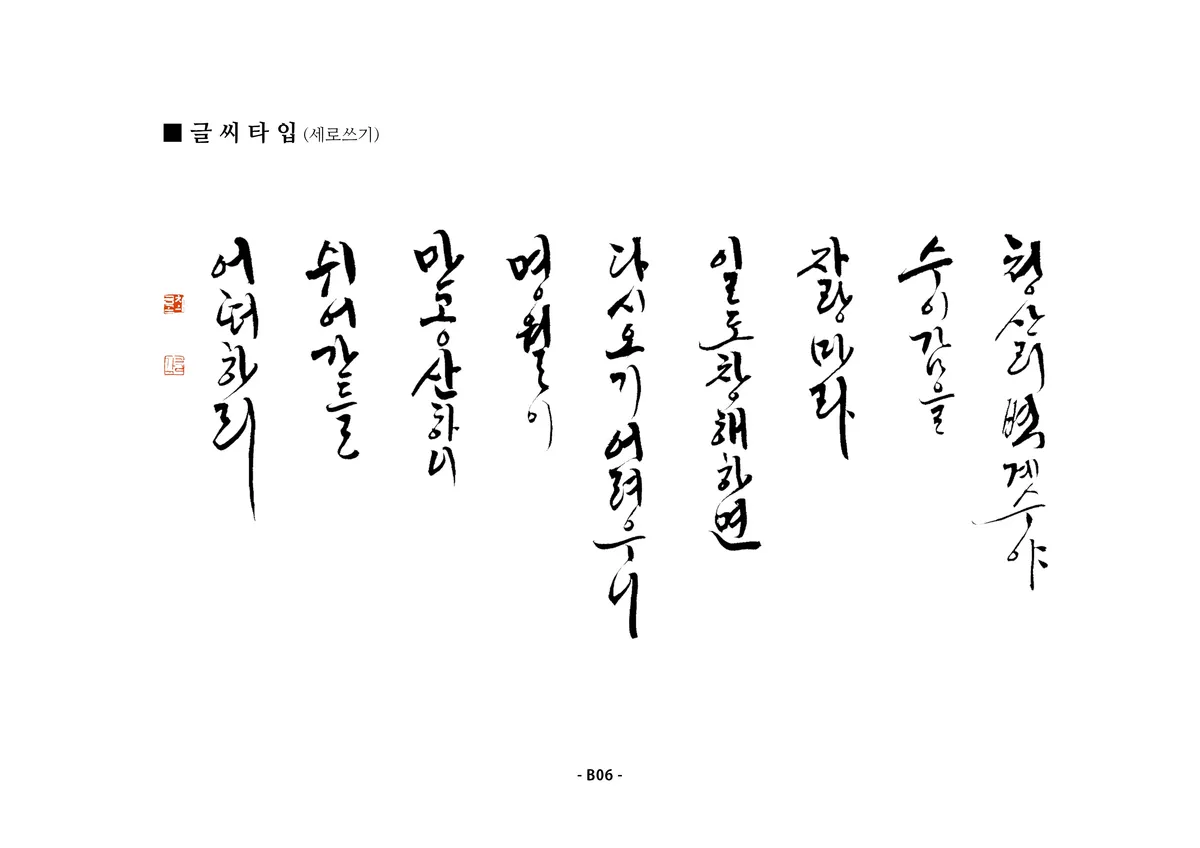 ■ 글씨타입 (세로쓰기)
청산리벽계수야
수이감을
자랑마라
일도창해하면
다시오기어려우니
명월이
만공산하니
쉬어간들
어떠하리
- B06 -